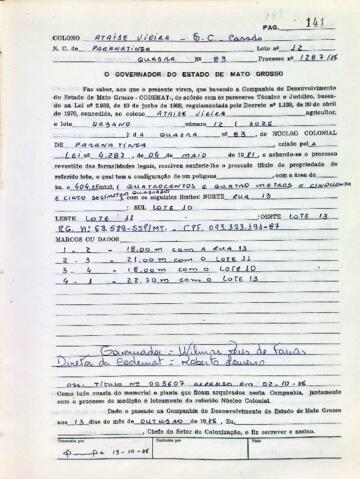 PAG. 141
COLONO ATAIDE VIEIRA - E.C. Casado
N. C. de PARANATINGA Lote nº 12
QUADRA Nº 83 Processo nº 1287/86
O GOVERNADOR DO ESTADO DE MATO GROSSO
Faz saber, aos que a presente virem, que havendo a Companhia de Desenvolvimento
do Estado de Mato Grosso - CODEMAT, de acôrdo com os pareceres Técnico e Jurídico, basea-
do na Lei nº 2.983, de 10 de junho de 1969, regulamentada pelo Decreto nº 1.138, de 30 de abril
de 1970, concedido, ao colono ATAIDE VIEIRA agricultor,
e lote URBANO 12 (DOZE
) da QUADRA nº 83, do NÚCLEO COLONIAL
DE PARANATINGA, criado pela
LEI nº 4.287, de 04 de MAIO de 1981, e achando-se o processo
revestido das formalidades legais, resolveu conferir-lhe o presente título de propriedade do
referido lote, o qual tem a configuração de um polígono, com a área de
ha. 404,55mts2, ( QUATROCENTOS E QUATRO METROS E CINQUENTA
E CINCO DECIMETROS QUADRADOS com os seguintes limites: NORTE RUA 13
: SUL LOTE 10
LESTE LOTE 11 :OESTE LOTE 13
RG. Nº 63.589-SSP/MT. - CPF. 093.323.191-87
MARCOS OU DADOS
1 - 2 - 18.00 m com A RUA 13
2 - 3 - 21.00 m com O LOTE 11
3 - 4 - 18.00 m com O LOTE 10
4 - 1 - 22.70 m com O LOTE 13
Governador = Wilmar Peres de Farias
Diretor da Codemat = Roberto Loureiro
OBS: TITULO Nº 003607 EXPEDIDO EM 02-10-86
Como tudo consta do memorial e planta que ficam arquivados nesta Companhia, juntamente
com o processo de medição e loteamento do referido Núcleo Colonial.
Dado e passado na Companhia de Desenvolvimento do Estado de Mato Grosso
aos 13 dias do mês de OUTUBRO de 1986, Eu,
, Chefe do Setor de Colonização, o fiz escrever e assino.
Transcrito por Conferido por Visto
13-10-86